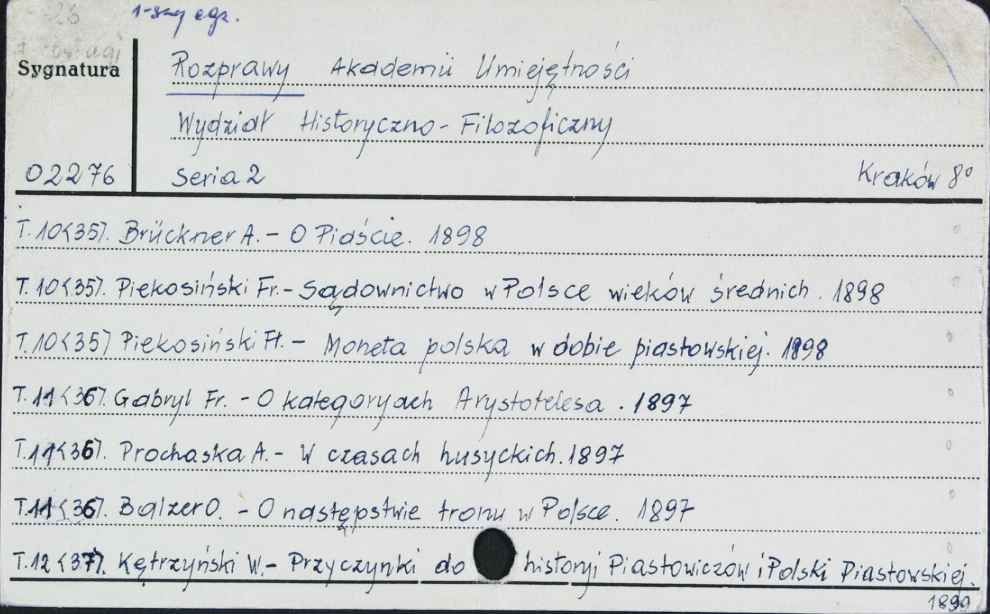 1-szy egz.
Sygnatura
Rozprawy Akademii Umiejętności
Wydział Historyczno-Filozoficzny
02276 Seria 2 Kraków 8°
T.10<35>. Brückner A. - O Piaście. 1898
T.10<35>. Piekosiński Fr. - Sądownictwo w Polsce wieków średnich. 1898
T.10<35> Piekosiński Fr. - Moneta polska w dobie piastowskiej. 1898
T.11<36>. Gabryl Fr. - O kategoryach Arystotelesa. 1897
T.11<36>. Prochaska A. - W czasach husyckich. 1897
T.11<36>. Balzer O. - O następstwie tronu w Polsce. 1897
T.12<37>. Kętrzyński W. - Przyczynki do historyi Piastowiczów i Polski Piastowskiej.